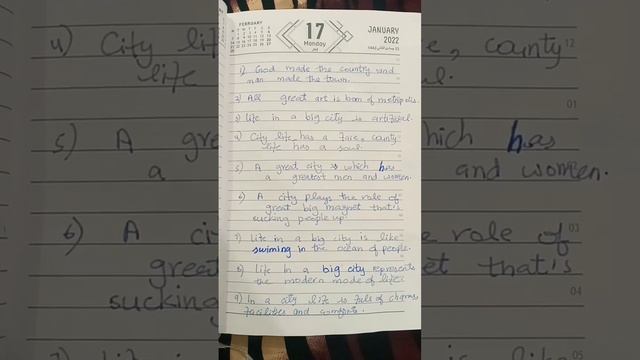 FEBRUARY
17
Monday
JANUARY
2022
1) God made the country and
man made the town.
2) All great art is born of metropolis.
3) Life in a big city is artificial.
4) City life has a face, county
life has a soul.
5) A great city is which has
a greatest men and women.
6) A city plays the role of
great big magnet that's
sucking people up
7) Life in a big city is like
swiming in the ocean of people.
8) Life in a big city represents
the modern mode of life.
9) In a city life is fuls of charms,
facilities and comforts.